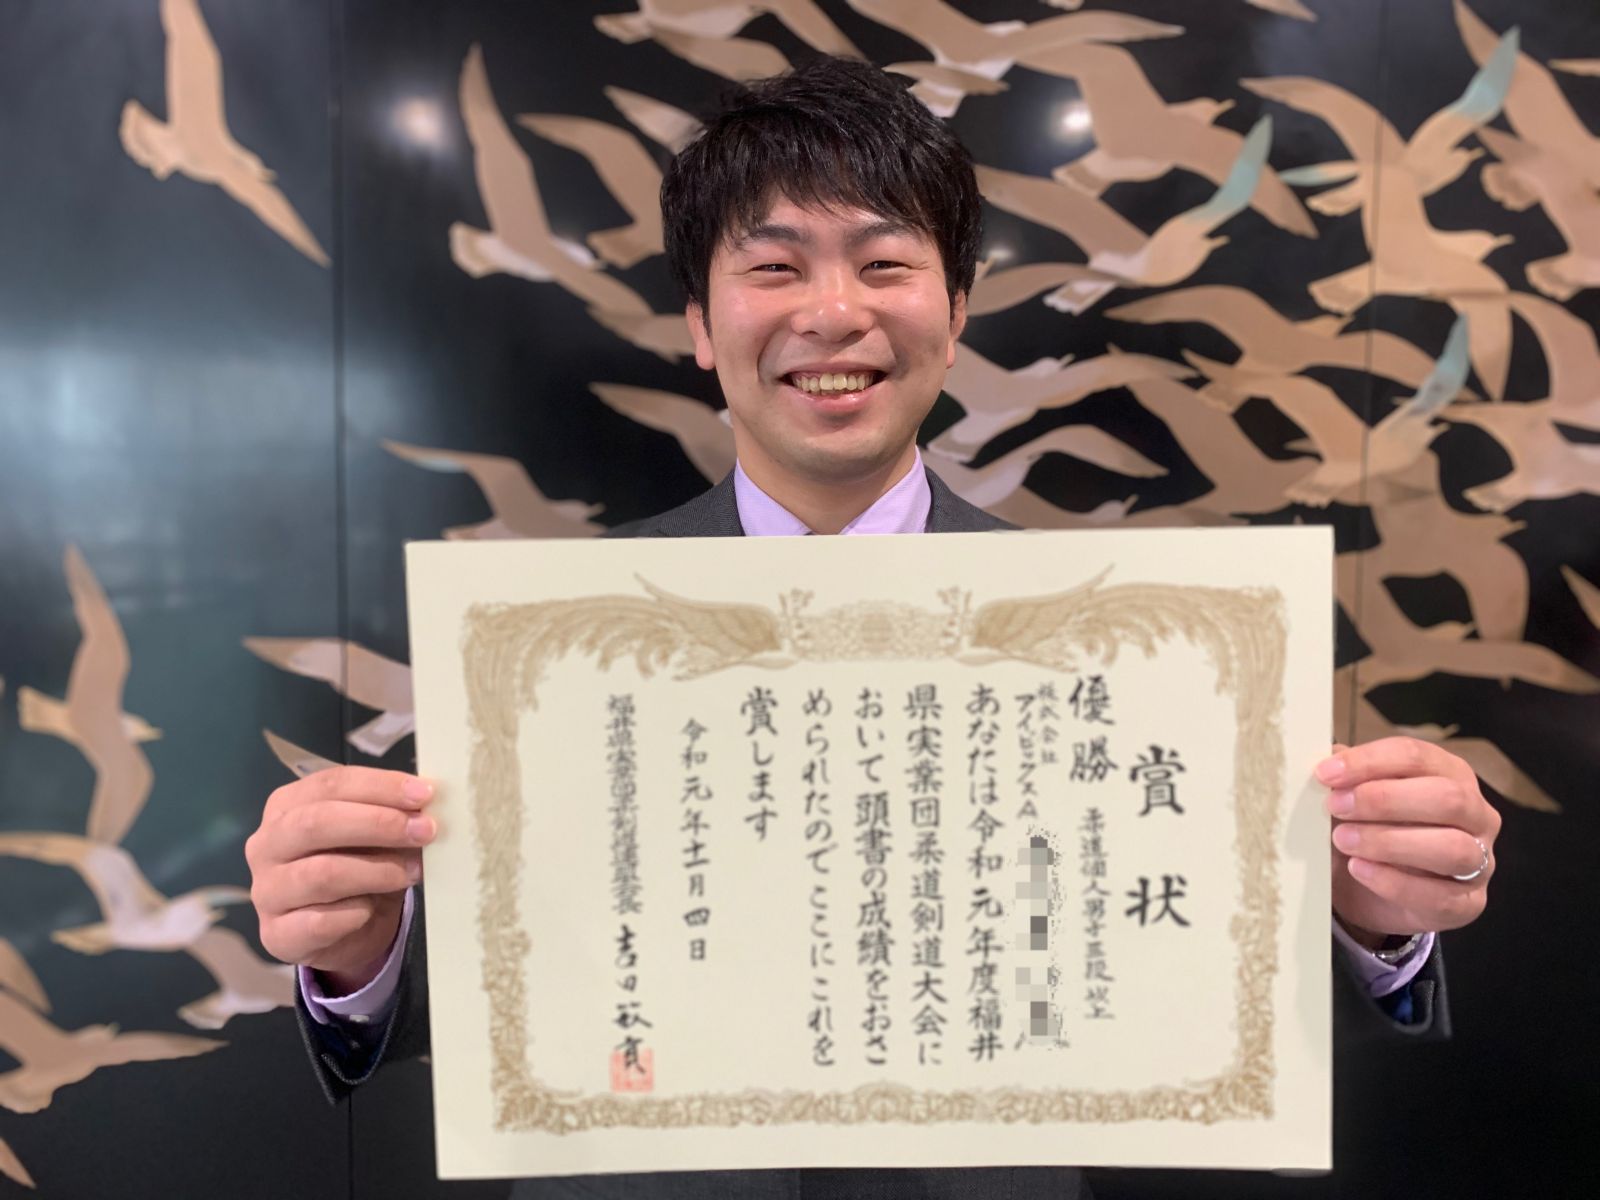 賞状
優勝 柔道個人男子三段以上
株式会社
アイビックス
あなたは令和元年度福井
県実業団柔道剣道大会に
おいて頭書の成績をおさ
められたのでここにこれを
賞します
令和元年十一月四日
福井県実業団柔剣道連盟会長 吉田敏貢